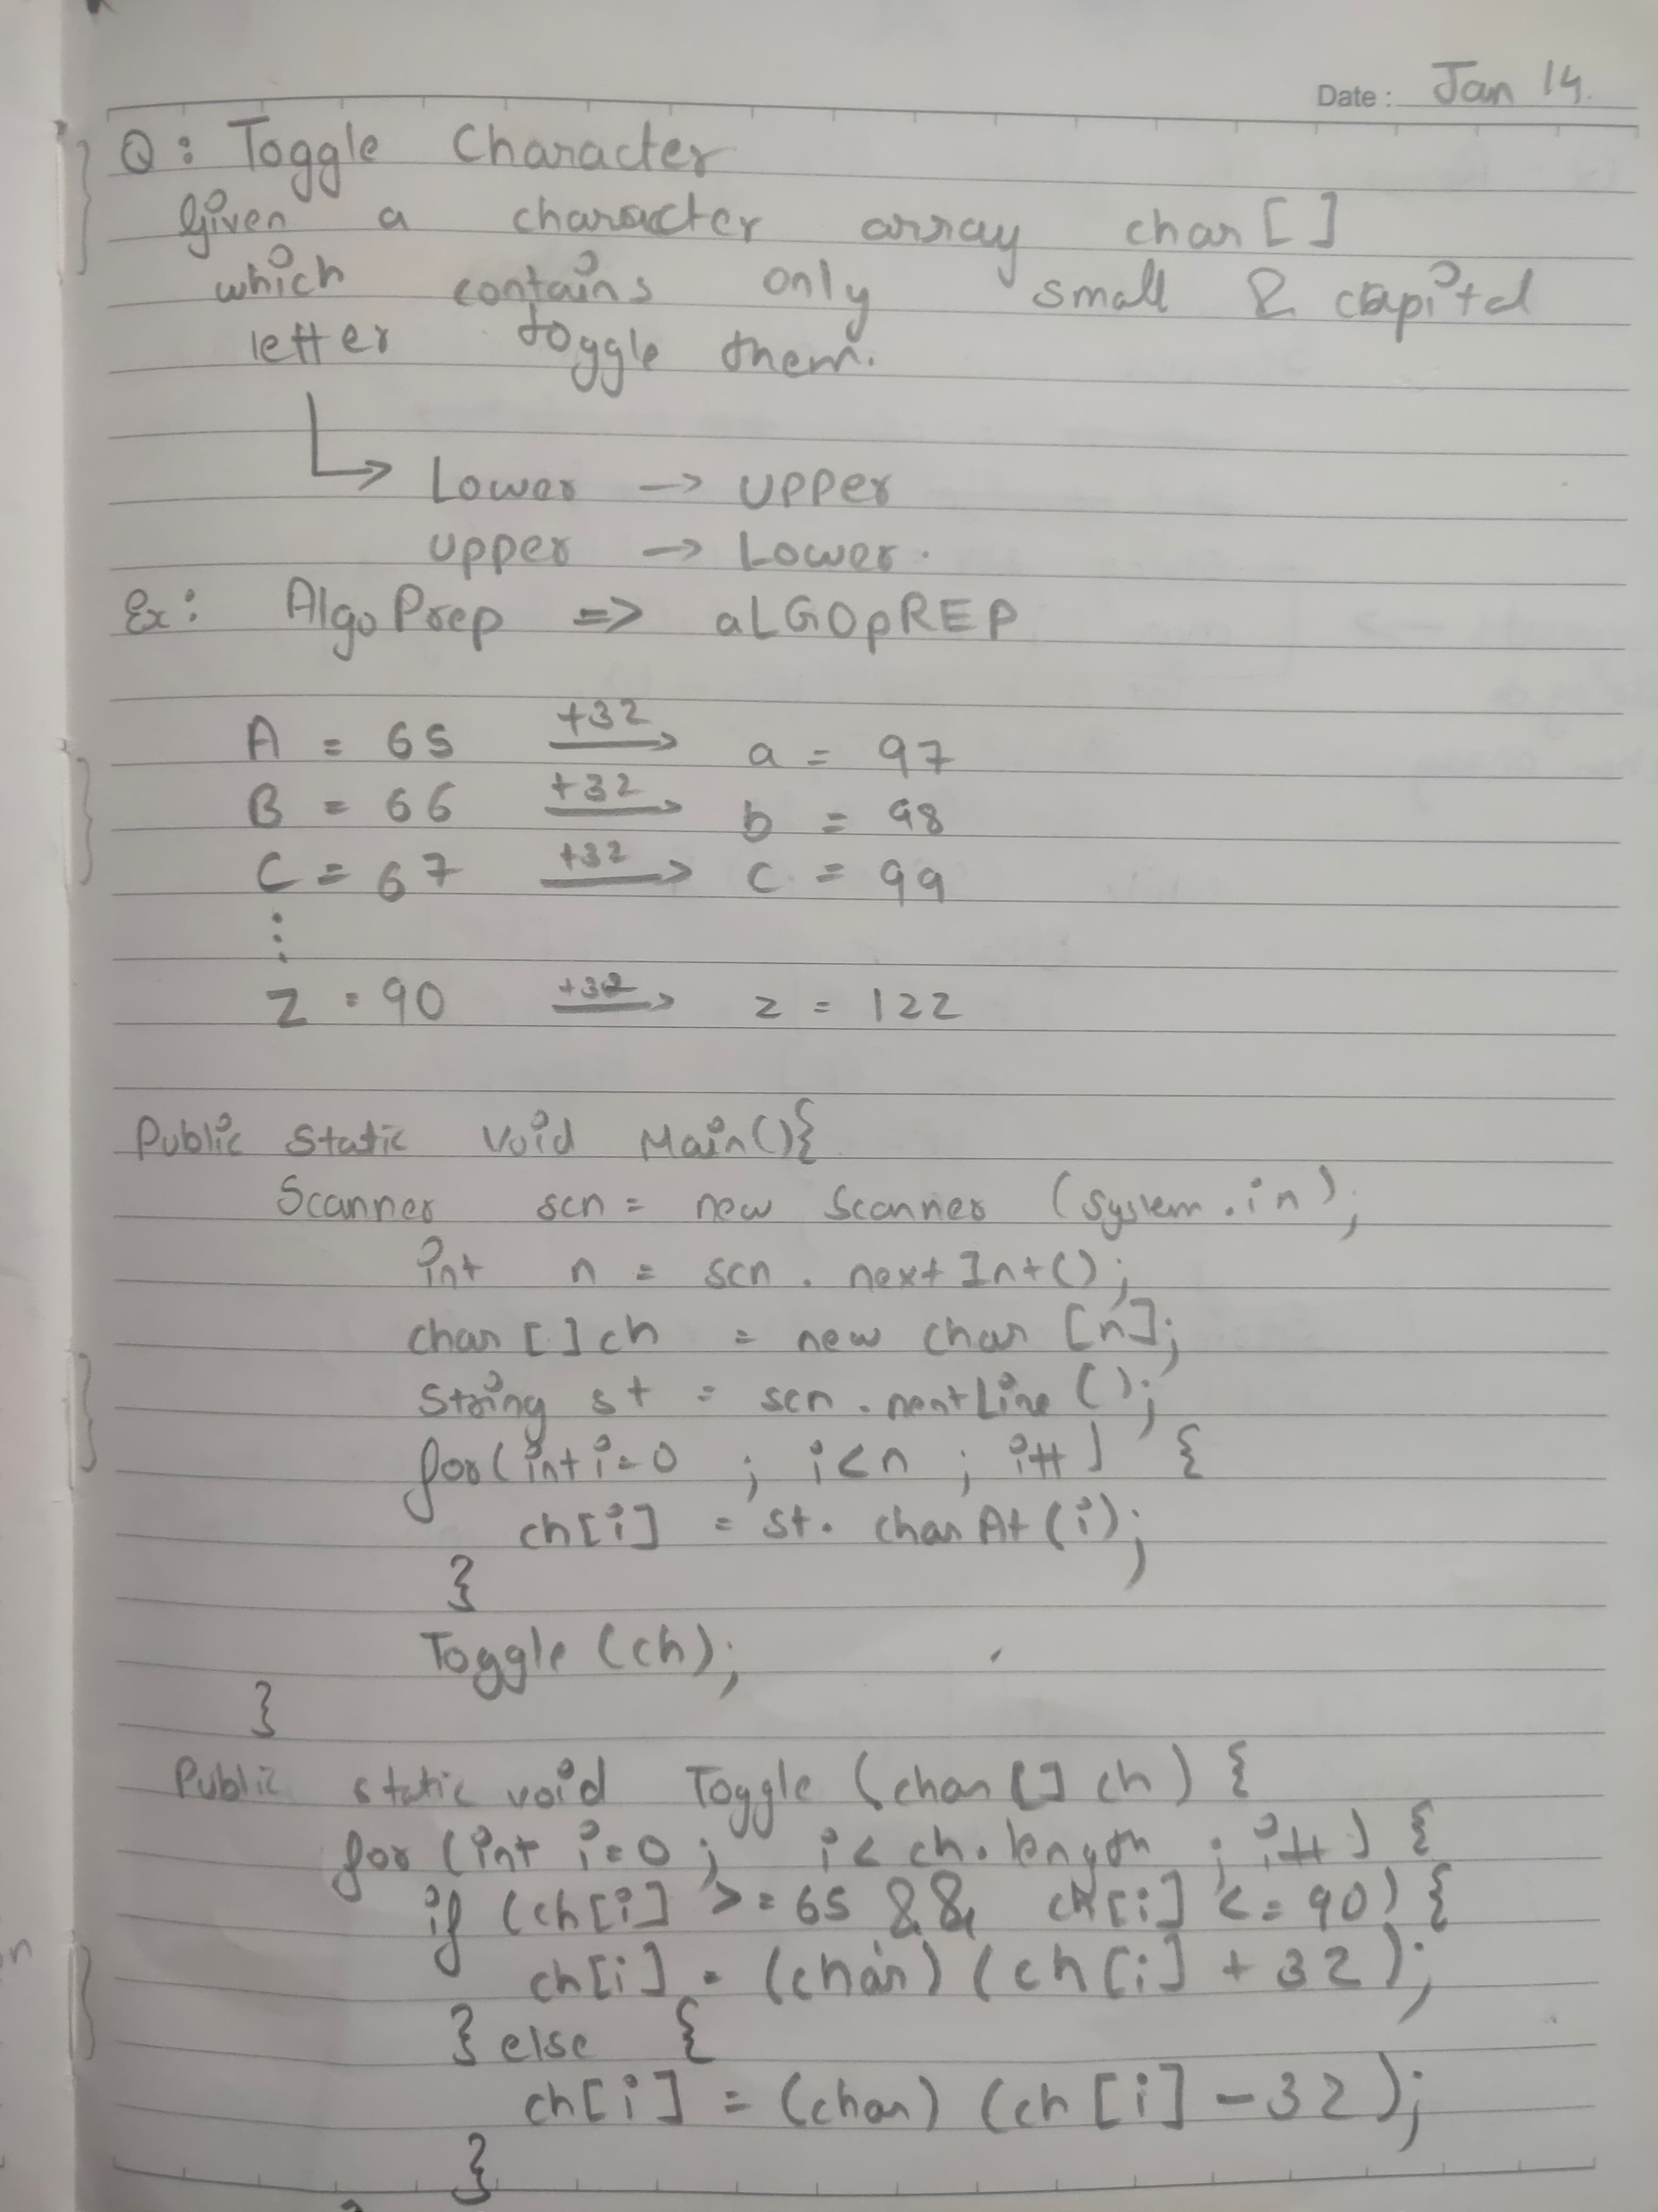 Date : Jan 14.
Q: Toggle Character
Given a character array char []
which contains only small & capital
letter toggle them.
Lower -> upper
upper -> Lower.
Ex: AlgoPrep => aLGOpREP
A = 65 +32 a = 97
B = 66 +32 b = 98
C = 67 +32 c = 99
⋮
Z = 90 +32 z = 122
Public static void Main(){
Scanner scn = new Scanner (system.in);
int n = scn.nextInt();
char [] ch = new char [n];
String st = scn.nextLine ();
for(int i=0 ; i<n ; i++) {
ch[i] = st. charAt(i);
}
Toggle (ch);
}
Public static void Toggle (char [] ch) {
for (int i=0 ; i< ch.length ; i++) {
if (ch[i] >= 65 && ch[i] <= 90) {
ch[i] = (char) (ch[i] + 32);
} else {
ch[i] = (char) (ch[i] - 32);
}